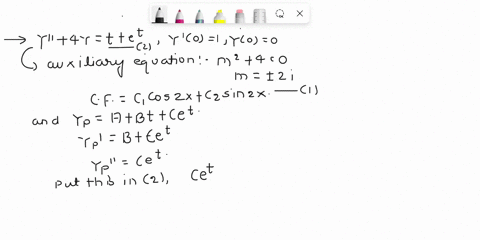 → Y''+4Y = t+e^t, Y'(0)=1, Y(0)=0
(2)
auxiliary equation:- m²+4=0
m = ±2i
C.F. = C₁cos2x + C₂sin2x. —(1)
and Yp = A+Bt+Ce^t.
Yp' = B+Ce^t
Yp'' = Ce^t.
put this in (2), Ce^t